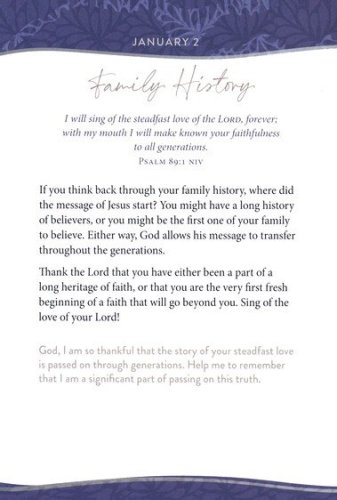 JANUARY 2
Family History
I will sing of the steadfast love of the LORD, forever;
with my mouth I will make known your faithfulness
to all generations.
PSALM 89:1 NIV
If you think back through your family history, where did
the message of Jesus start? You might have a long history
of believers, or you might be the first one of your family
to believe. Either way, God allows his message to transfer
throughout the generations.
Thank the Lord that you have either been a part of a
long heritage of faith, or that you are the very first fresh
beginning of a faith that will go beyond you. Sing of the
love of your Lord!
God, I am so thankful that the story of your steadfast love
is passed on through generations. Help me to remember
that I am a significant part of passing on this truth.